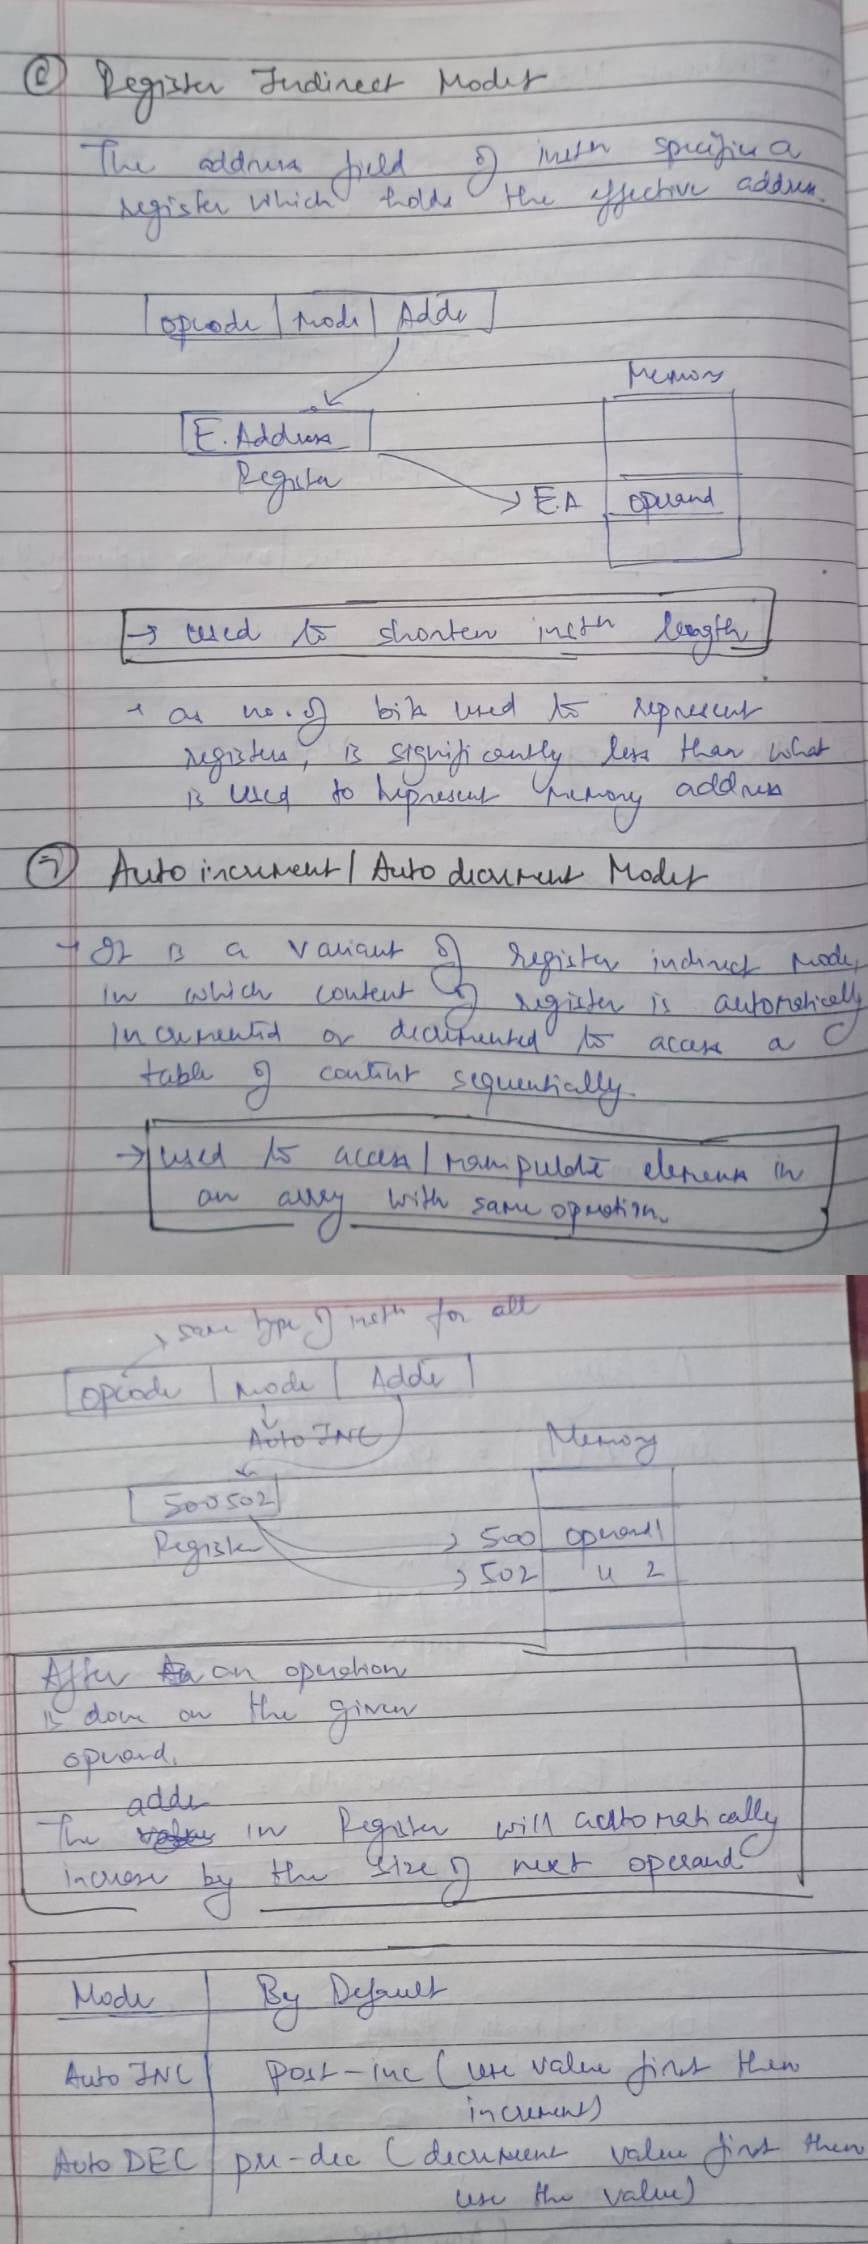 ⑥ Register Indirect Modes
The address field of instn specifies a
register which holds the effective address.
opcode | Mode | Addr
Memory
E. Address
Register
E.A operand
→ used to shorten instn length
→ as no. of bits used to represent
registers, is significantly less than what
is used to represent memory address
⑦ Auto increment / Auto decrement Modes
→ It is a variant of register indirect mode,
in which content of register is automatically
incremented or decremented to access a
table of content sequentially.
→ used to access / manipulate elements in
an array with same operation.
→ same type of instn for all
opcode | Mode | Addr
Auto INC
Memory
500 502
Register
500 operand 1
502 " 2
After an operation
is done on the given
operand.
addr
The in Register will automatically
increase by the size of next operand
Mode | By Default
Auto INC | post-inc (use value first then
increment)
Auto DEC | pre-dec (decrement value first then
use the value)